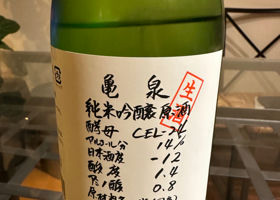 亀泉
純米吟醸原酒
生酒
酵母 CEL-24
アルコール分 14%
日本酒度 -12
酸度 1.4
アミノ酸 0.8